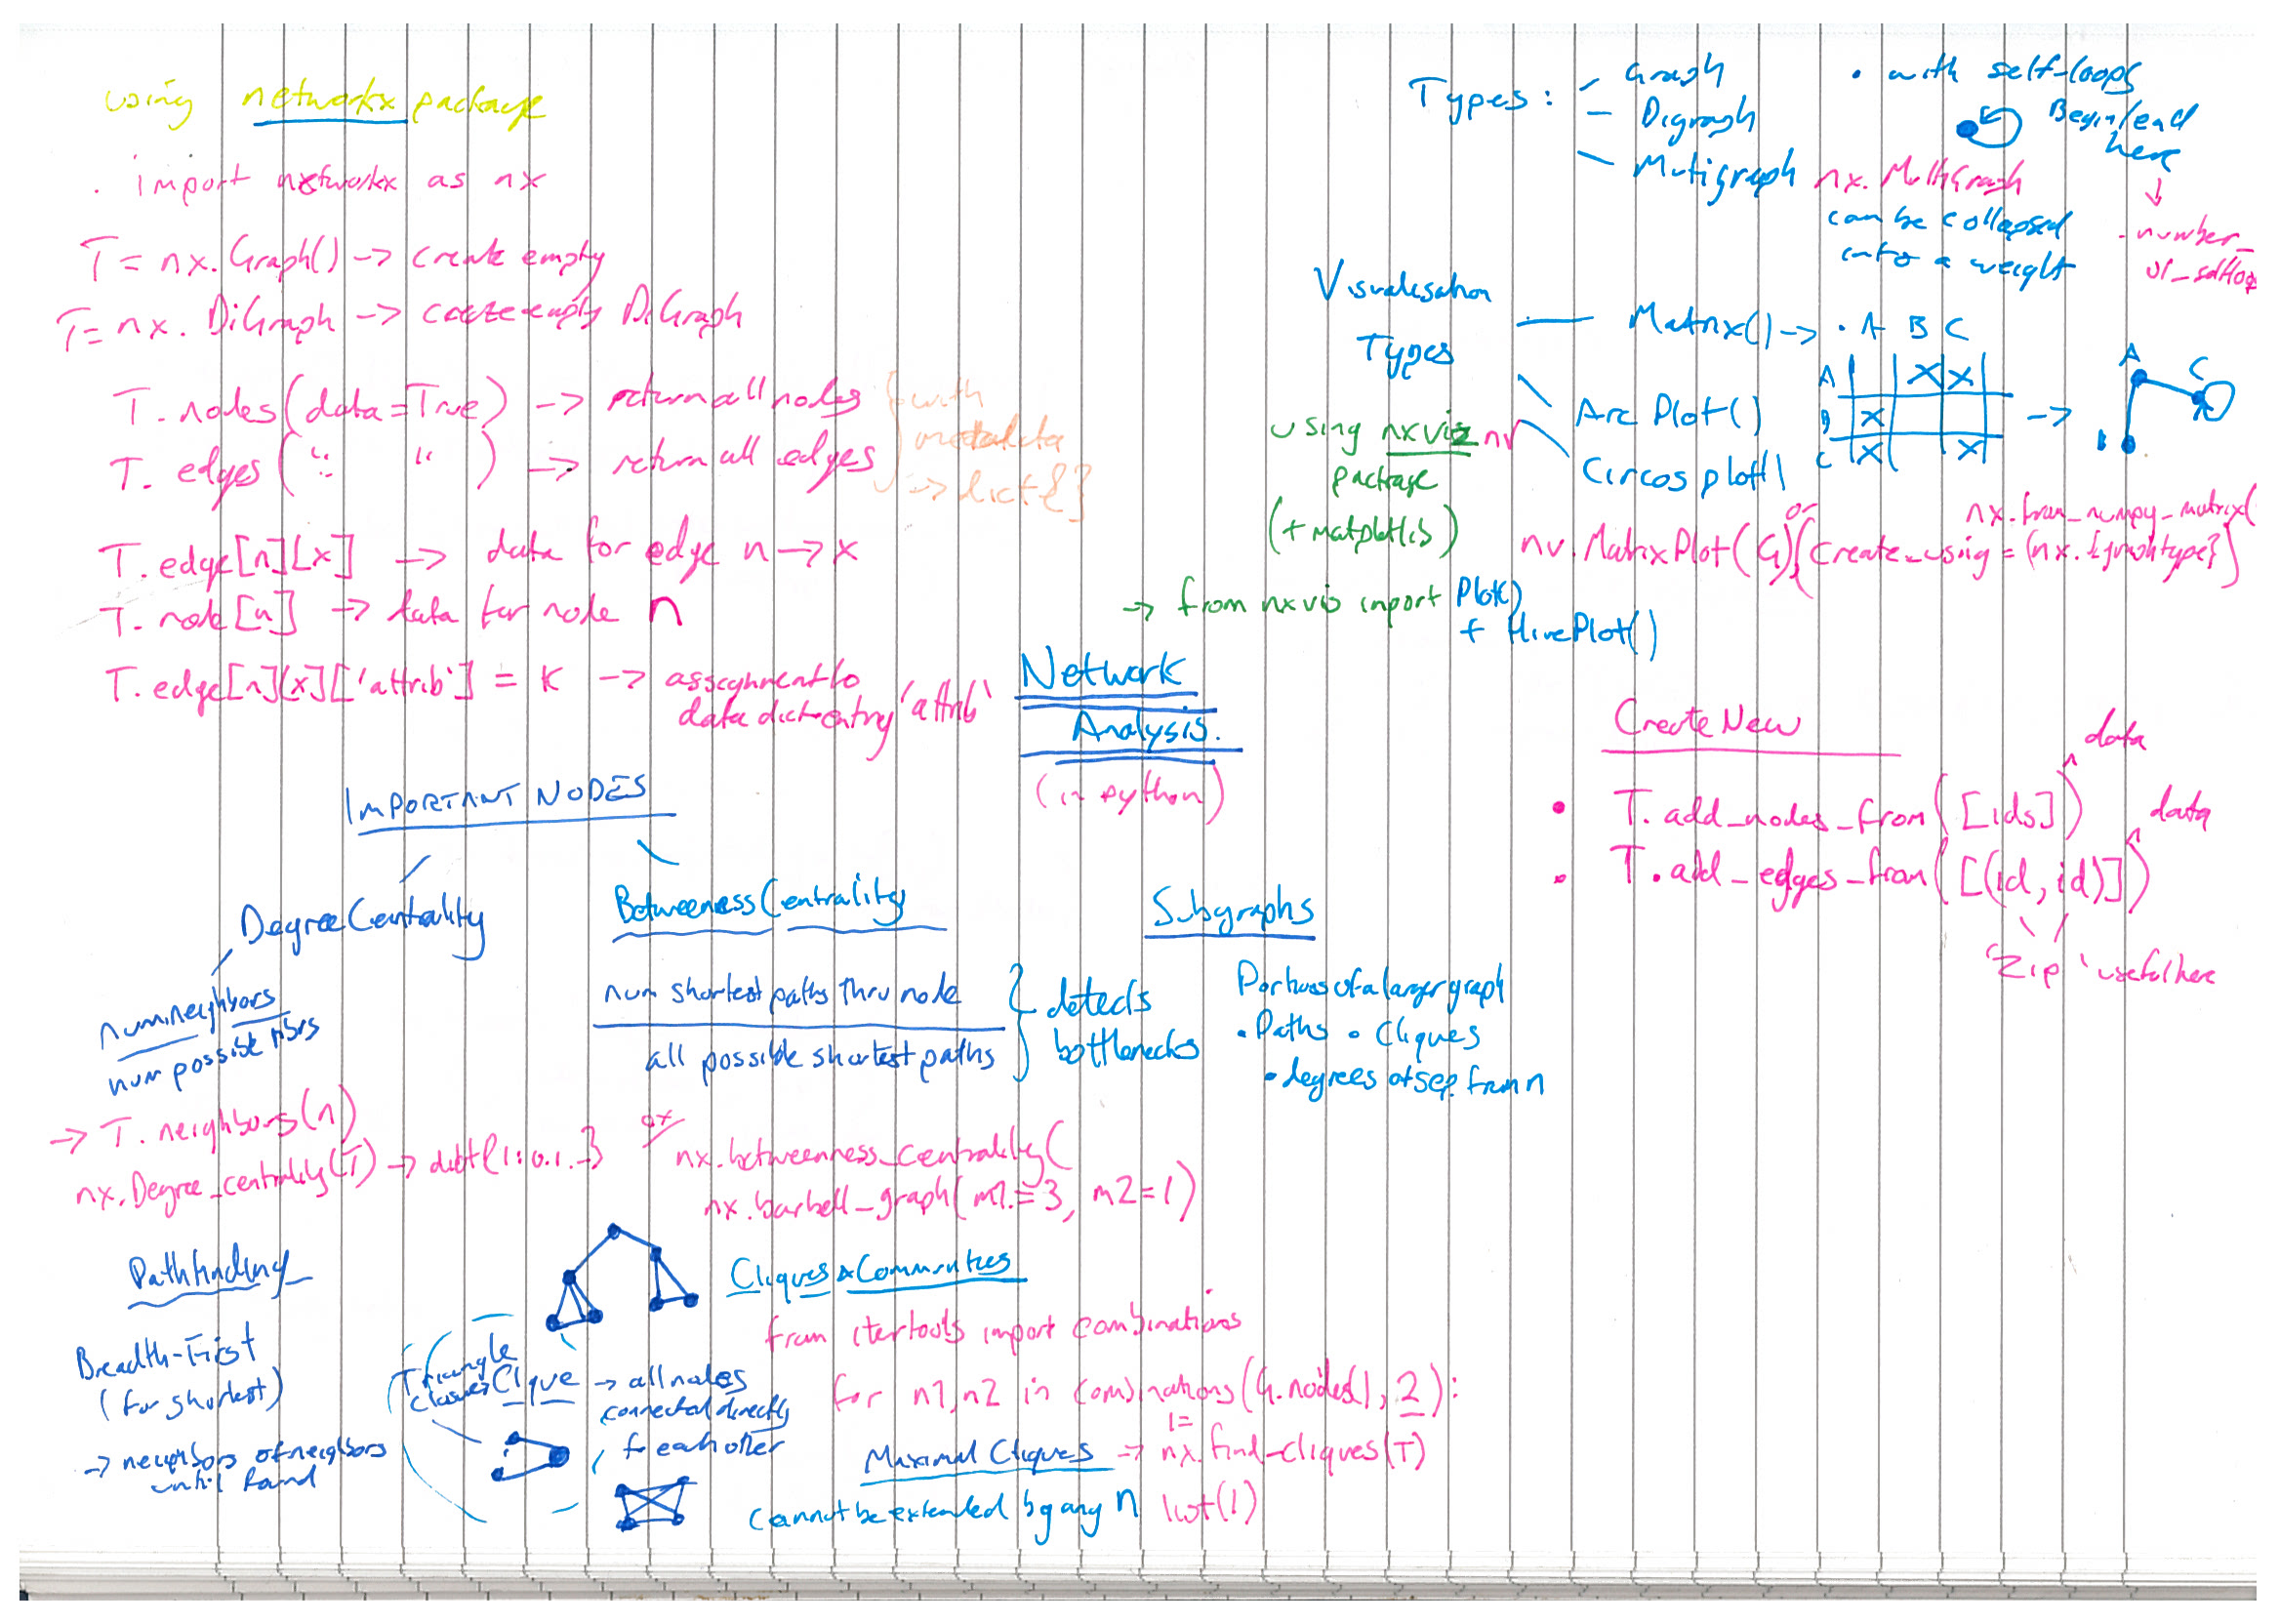 using networkx package
. import networkx as nx
T = nx.Graph() -> create empty
T = nx.DiGraph -> create empty DiGraph
T.nodes(data=True) -> return all nodes
T.edges( " " ) -> return all edges
} with
metadata
-> dict{}
T.edge[n][x] -> data for edge n -> x
T.node[n] -> data for node n
T.edge[n][x]['attrib'] = K -> assignment to
data dict entry 'attrib'
Types : - Graph
- Digraph
- Mutigraph
nx.MultiGraph
can be collapsed
into a weight
• with self-loops
Begin/end
here
↓
.number_
of_selfloo
Visualisation
Types
Matrix() -> • A B C
A X X
B X
C X X
->
A
C
B
Arc Plot()
Circos plot()
using nxviz nv
package
(+ matplotlib)
or nx.from_numpy_matrix(
nv.MatrixPlot(G) (create_using = (nx.{graphtype})
-> from nxviz import Plot()
+ HivePlot()
Network
Analysis.
(in python)
Create New
• T.add_nodes_from([ids]) ^ data
• T.add_edges_from([(id, id)]) ^ data
'zip' useful here
IMPORTANT NODES
Degree Centrality
num neighbors
num possible nbrs
-> T.neighbors(n)
nx.Degree_centrality(T) -> dict{1:0.1..}
Betweeness Centrality
num shortest paths thru node
all possible shortest paths
} detects
bottlenecks
nx.betweenness_centrality(
nx.barbell_graph(m1=3, m2=1)
Subgraphs
Portions of a larger graph
• Paths • Cliques
• degrees of sep. from n
Pathfinding
Breadth-First
(for shortest)
-> neighbors of neighbors
until found
Cliques & Communities
from itertools import combinations
for n1,n2 in combinations(G.nodes(), 2):
Triangle
Clique -> all nodes
connected directly
to each other
Maximal Cliques -> l = nx.find_cliques(T)
cannot be extended by any n list(l)